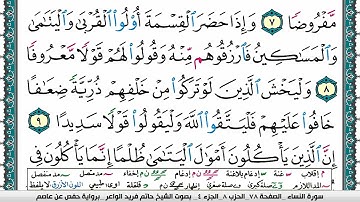 مَّفْرُوضًا ٧ وَإِذَا حَضَرَ ٱلْقِسْمَةَ أُو۟لُوا۟ ٱلْقُرْبَىٰ وَٱلْيَتَـٰمَىٰ
وَٱلْمَسَـٰكِينُ فَٱرْزُقُوهُم مِّنْهُ وَقُولُوا۟ لَهُمْ قَوْلًا مَّعْرُوفًا
٨ وَلْيَخْشَ ٱلَّذِينَ لَوْ تَرَكُوا۟ مِنْ خَلْفِهِمْ ذُرِّيَّةً ضِعَـٰفًا
خَافُوا۟ عَلَيْهِمْ فَلْيَتَّقُوا۟ ٱللَّهَ وَلْيَقُولُوا۟ قَوْلًا سَدِيدًا ٩
إِنَّ ٱلَّذِينَ يَأْكُلُونَ أَمْوَٰلَ ٱلْيَتَـٰمَىٰ ظُلْمًا إِنَّمَا يَأْكُلُونَ فِى
سورة النساء . الصفحة ٧٨ . الحزب ٨ . الجزء ٤ . بصوت الشيخ حاتم فريد الواعر . برواية حفص عن عاصم